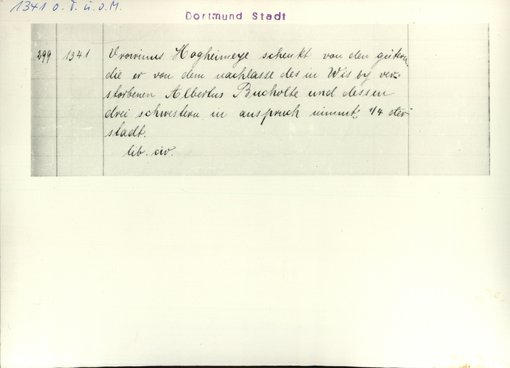 1341 o. T. u. o. M.
Dortmund Stadt
299 1341 Vrowinus Hogheimeye schenkt von den gütern,
die er von dem nachlasse des in Wisby ver-
storbenen Albertus Bucholte und dessen
drei schwestern in anspruch nimmt, 1/4 der
stadt.
lib. civ.